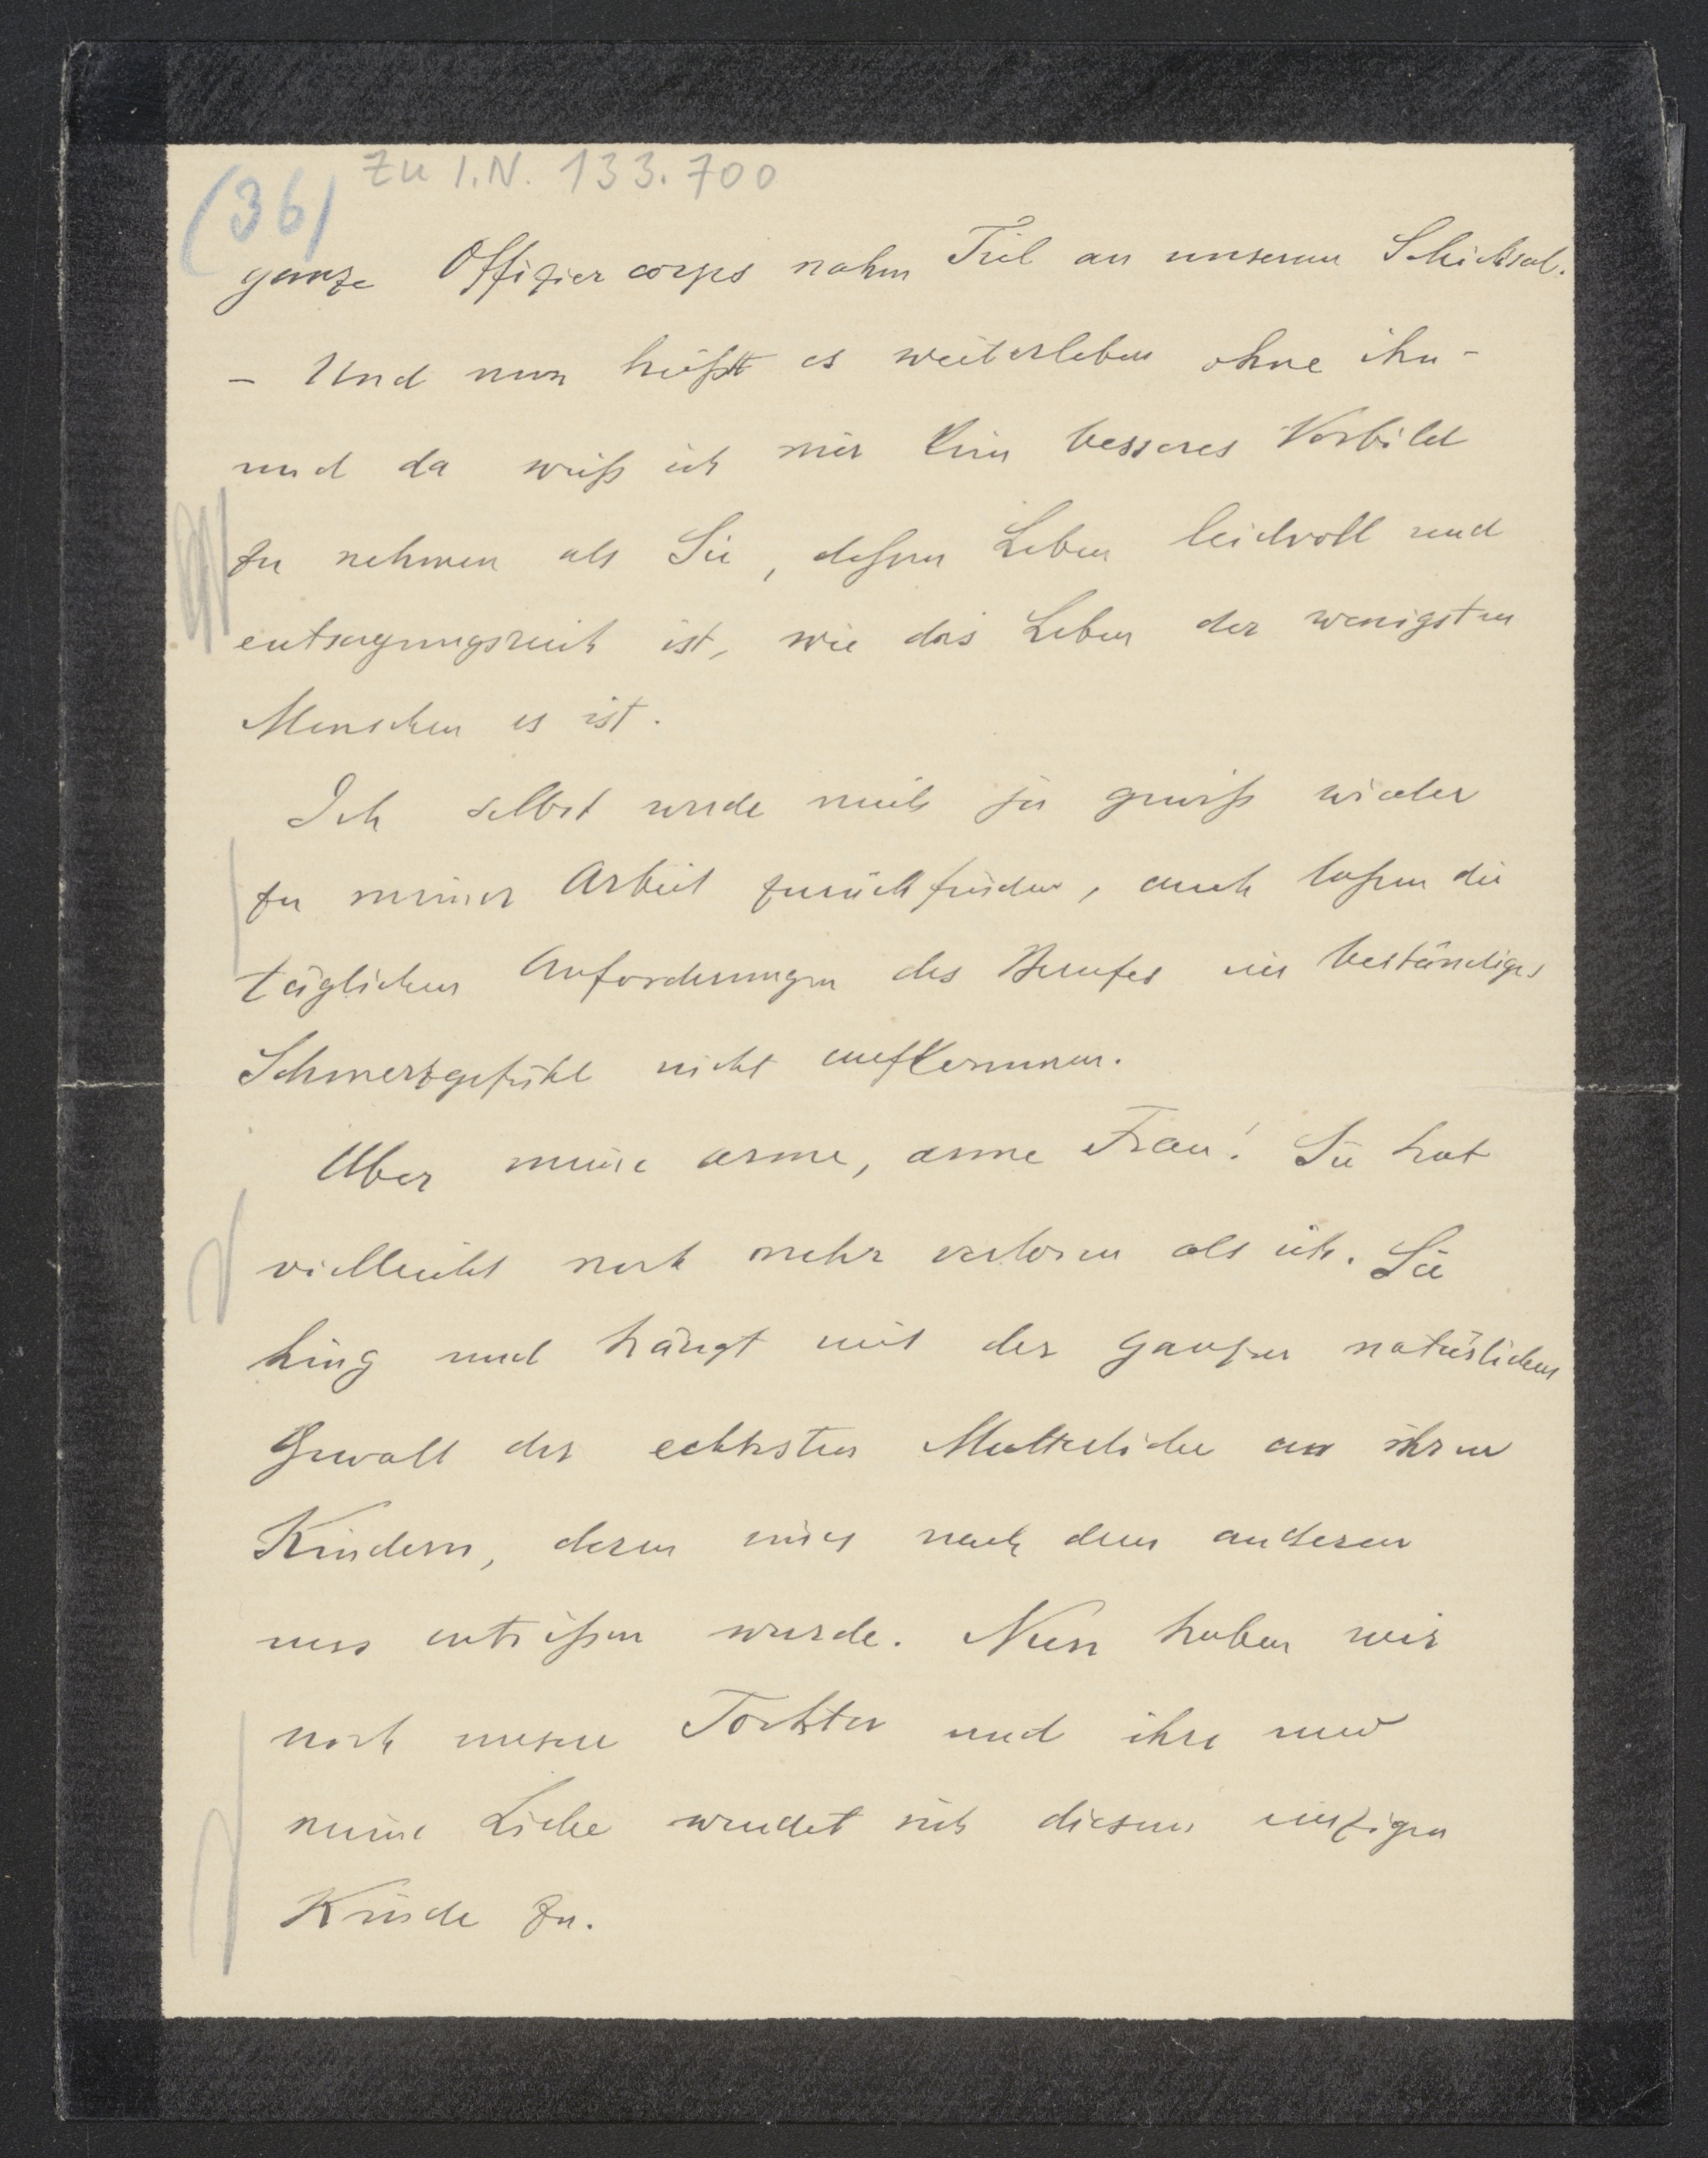 (36) Zu I.N. 133.700
ganze Offiziercorps nahm Teil an unserem Schicksal.
– Und nun heißt es weiterleben ohne ihn –
und da weiß ich mir kein besseres Vorbild
zu nehmen als Sie, deßen Leben leidvoll und
entsagungsreich ist, wie das Leben der wenigsten
Menschen es ist.
Ich selbst werde mich ja gewiß wieder
zu meiner Arbeit zurückfinden, auch laßen die
täglichen Anforderungen des Berufes ein beständiges
Schmerzgefühl nicht aufkommen.
Aber meine arme, arme Frau! Sie hat
vielleicht noch mehr verloren als ich. Sie
hing und hängt mit der ganzen natürlichen
Gewalt der echtesten Mutterliebe an ihren
Kindern, deren eines nach dem anderen
uns entrißen wurde. Nun haben wir
noch unsere Tochter und ihre und
meine Liebe wendet sich diesem einzigen
Kinde zu.